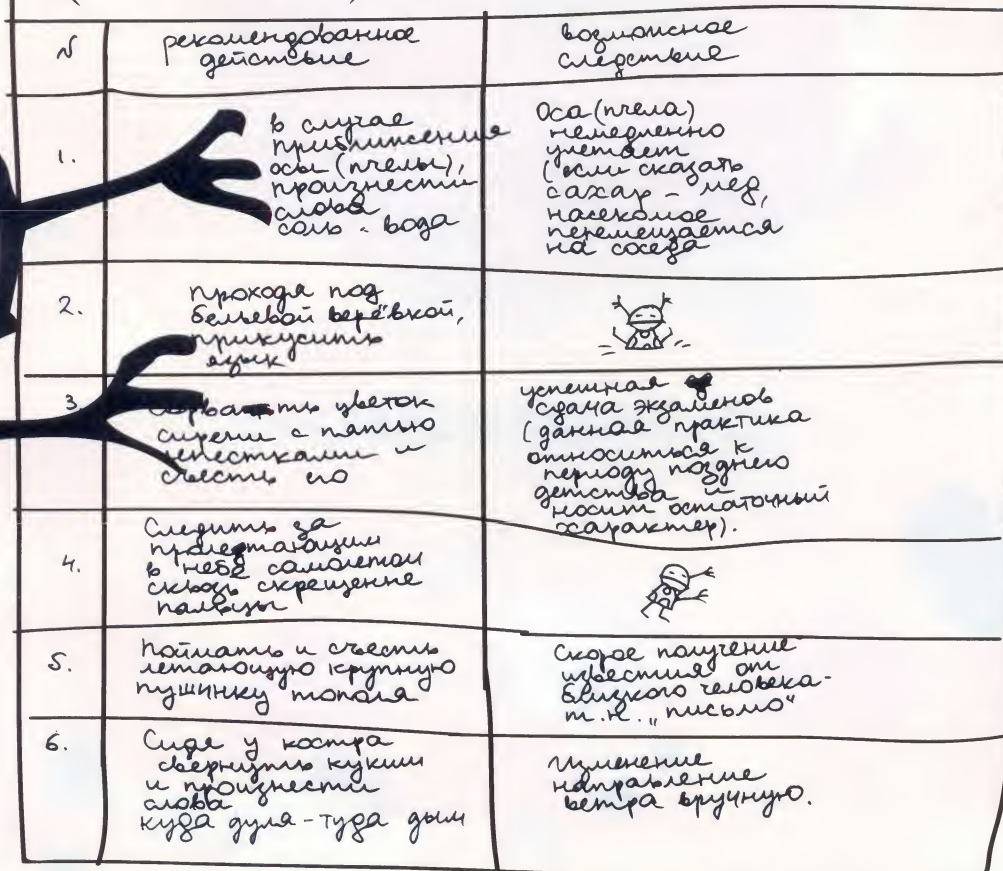 №
рекомендованное
действие
возможное
следствие
1.
в случае
приближения
осы (пчелы),
произнести
слова
соль - вода
Оса (пчела)
немедленно
улетает
(если сказать
сахар - мед,
насекомое
перемещается
на соседа
2.
проходя под
бельевой верёвкой,
прикусить
язык
3
цветок
сирени с пятью
лепестками и
съесть его
успешная
сдача экзаменов
(данная практика
относиться к
периоду позднего
детства и
носит остаточный
характер).
4.
Следить за
пролетающим
в небе самолетом
сквозь скрещенные
пальцы
5.
поймать и съесть
летающую крупную
пушинку тополя
Скорое получение
известия от
близкого человека -
т.н. „письмо"
6.
Сидя у костра
свернуть кукиш
и произнести
слова
куда дуля - туда дым
Изменение
направление
ветра вручную.